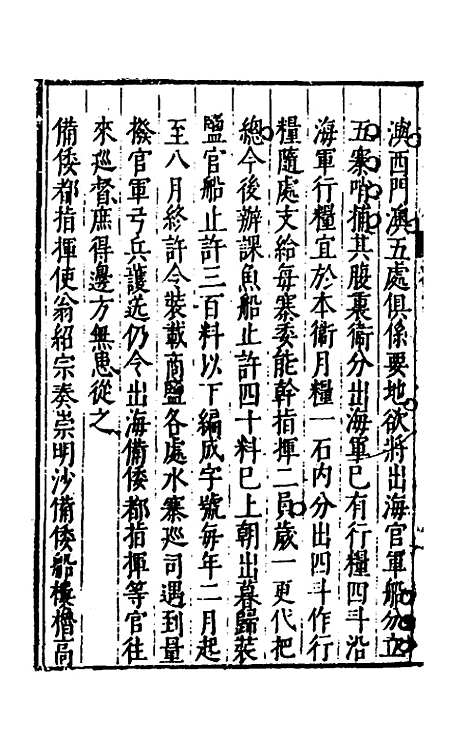 澳西門澳五處俱係要地欲將出海官軍船分立
五寨哨捕其腹裏衛分出海軍已有行糧四斗沿
海軍行糧宜於本衛月糧一石内分出四斗作行
糧隨處支給每寨委能幹指揮二員歲一更代把
總今後辦課魚船止許四十料巳上朝出暮歸裝
鹽官船止許三百料以下編成字號每年二月起
至八月終許令裝載商鹽各處水寨巡司遇到量
撥官軍弓兵護送仍令出海備倭都指揮等官往
來巡督庶得邊方無患從之
備倭都指揮使翁紹宗奏崇明沙備倭船樓櫓高